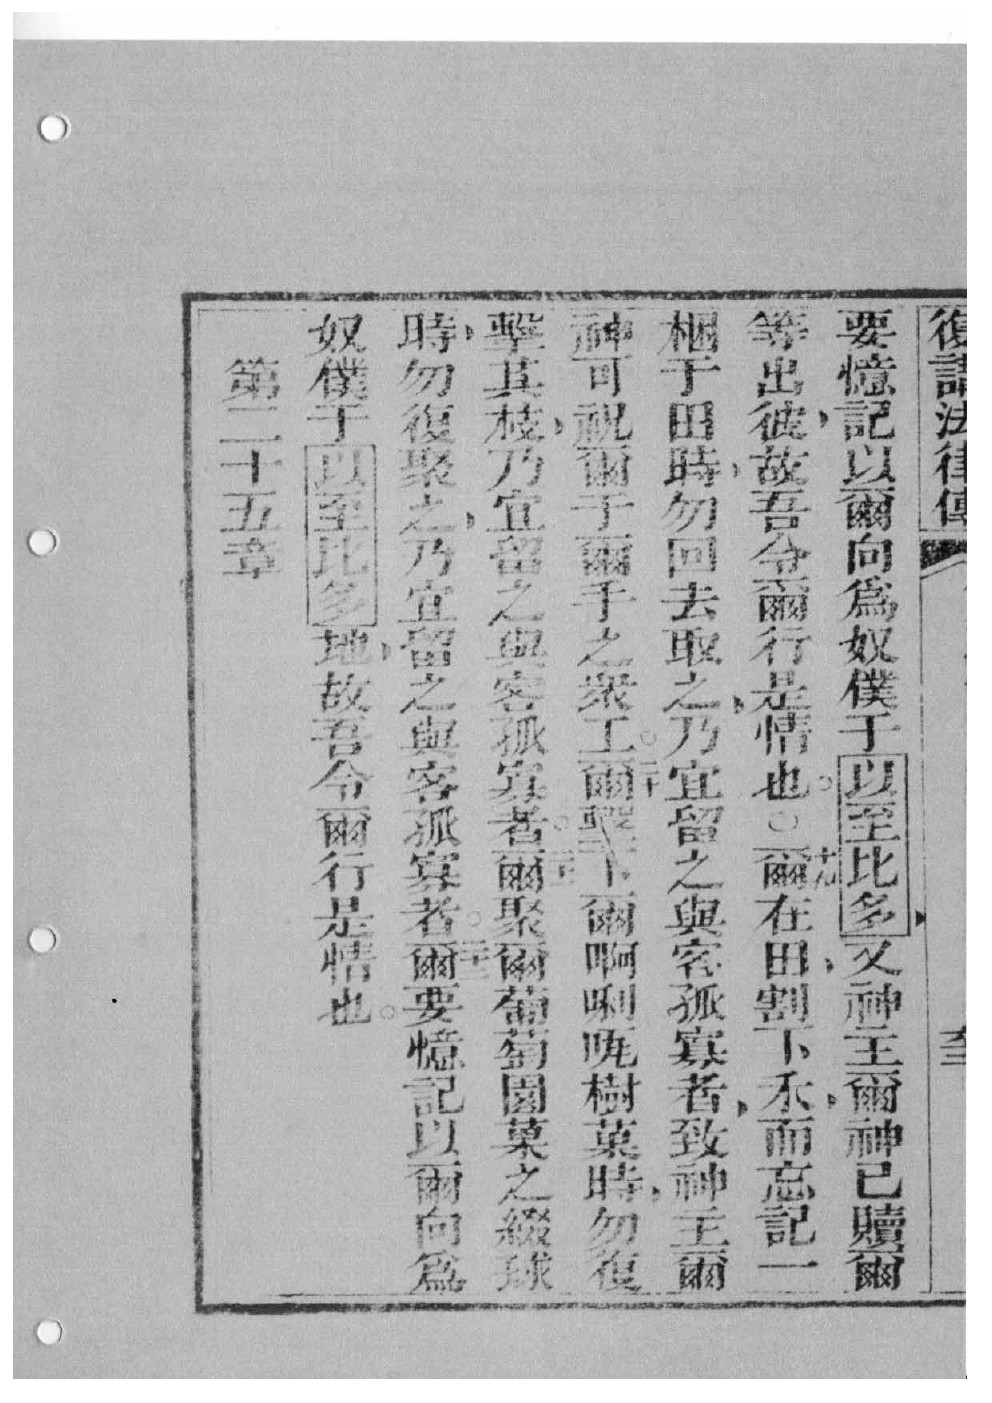 復講法律傳
要憶記以爾向為奴僕于以至比多又神主爾神已贖爾
等出彼故吾令爾行是情也○十九爾在田割下禾而忘記一
梱于田時勿回去取之乃宜留之與客孤寡者致神主爾
神可祝爾于爾手之衆工。二十爾擊下爾啊唎唲樹菓時勿復
擊其枝乃宜留之與客孤寡者。爾聚爾葡萄園菓之綴球
時勿復聚之乃宜留之與客孤寡者。爾要憶記以爾向為
奴僕于以至比多地故吾令爾行是情也。
第二十五章